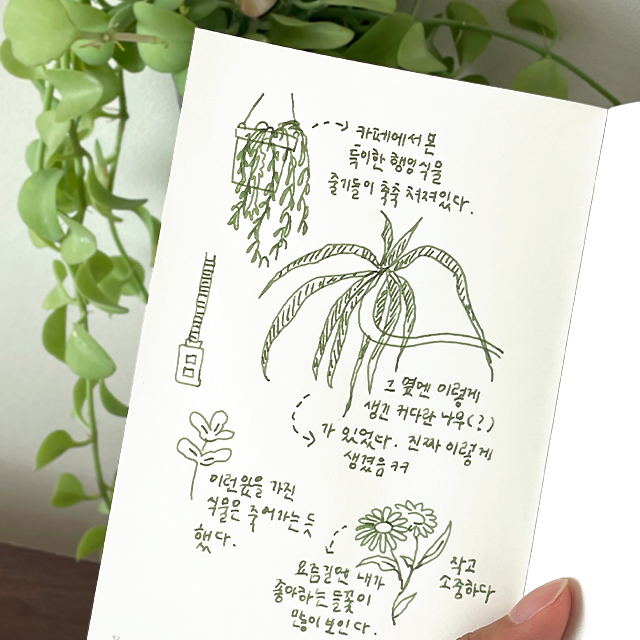 카페에서 본
특이한 행잉식물
줄기들이 축축 쳐져있다.
그 옆엔 이렇게
생긴 커다란 나무(?)
가 있었다. 진짜 이렇게
생겼음ㅋㅋ
이런 잎을 가진
식물은 죽어가는 듯
했다.
요즘길엔 내가
좋아하는 들꽃이
많이 보인다.
작고
소중하다